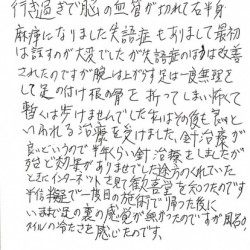 行き過ぎで脳の血管が切れて右半身
麻痺になりました失語症もありまして最初
は話すのが大変でしたが失語症のほうは改善
されたのですが腕は上がらず足は一度無理を
して足の付け根の骨を折ってしまい怖くて
暫くは歩けませんでした私はその後も良いと
いわれる治療を受けました、針治療が
良いというので半年くらい針治療をしましたが
効果がありませでした途方のくれていた
ときにインターネットを見て観善堂を知ったのです
半信半疑で一度目の施術で帰った後に
いままで足の裏の感覚が無かったのですが風呂の
タイルの冷たさを感じたのです。